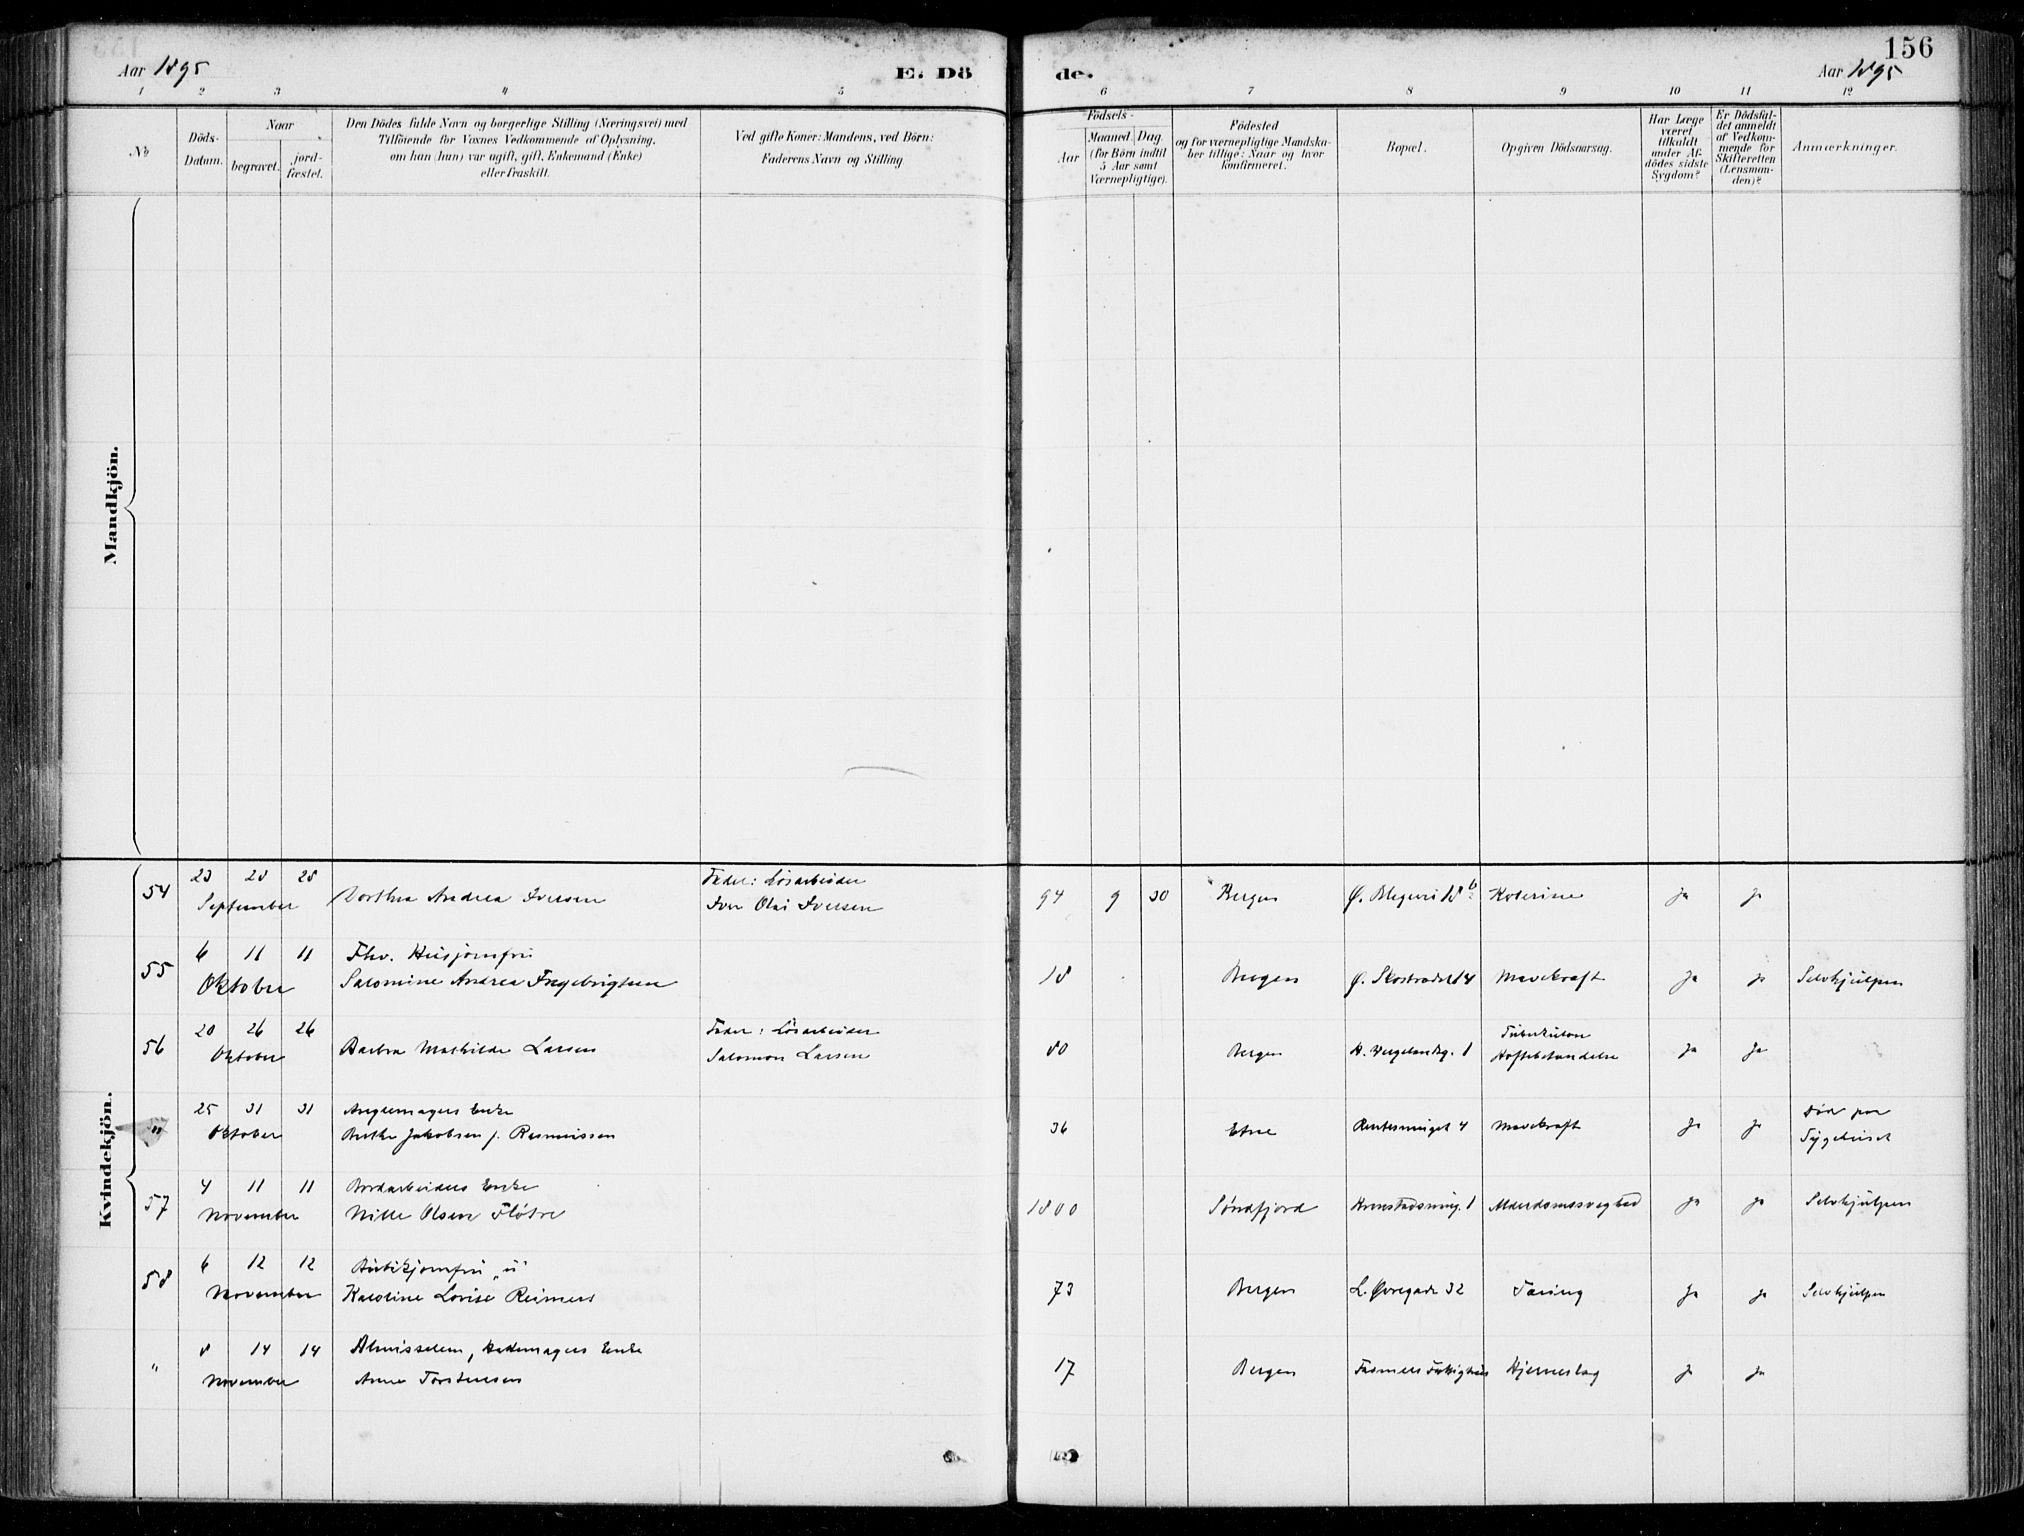 156
Aar 1895
E. Dö
de.
Aar 1895
1
2
3
4
5
6
7
8
9
10
11
12
No
Döds-
Datum.
Naar
begravet.
jord-
fæstet.
Den Dödes fulde Navn og borgerlige Stilling (Næringsvei) med
Tilföiende for Voxnes Vedkommende af Oplysning,
om han (hun) var ugift, gift, Enkemand (Enke)
eller fraskilt.
Ved gifte Koner: Mandens, ved Börn:
Faderens Navn og Stilling
Födsels-
Aar
Maaned.
Dag.
(for Börn indtil
5 Aar samt
Værnepligtige).
Födested
og for værnepligtige Mandska-
ber tillige: Naar og hvor
konfirmeret.
Bopæl.
Opgiven Dödsaarsag.
Har Læge
været
tilkaldt
under Af-
dödes sidste
Sygdom?
Er Dödsfal-
det anmeldt
af Vedkom-
mende for
Skifteretten
(Lensman-
den)?
Anmærkninger.
Mandkjön.
Kvindekjön.
54
23 28 28
September
Dorthea Andrea Iversen
Fader: Løsarbeider
Iver Olai Iversen
94 9 30
Bergen
Ø. Blegevei 18 b
Kolerine
ja
ja
55
6 11 11
Oktober
Fhv. Husjomfru
Salomine Andrea Ingebrigtsen
18
Bergen
Ø. Skostrædet 14
Mavekræft
ja
ja
Selvhjulpen
56
20 26 26
Oktober
Barbra Mathilde Larsen
Fader: Løsarbeider
Salomon Larsen
80
Bergen
H. Wergelandsg. 1
Tuberkuløs
Hoftebetændelse
ja
ja
"
25 31 31
Oktober
Enke
Berthe Jakobsen f. Rasmussen
36
Etne
4
Mavekræft
ja
ja
Død paa
Sygehuset
57
4 11 11
November
Bordarbeiders Enke
Nille Olsen Fløtre
1800
Søndfjord
1
Alderdomssvaghed
ja
ja
Selvhjulpen
58
6 12 12
November
Butikjomfru "u"
Karoline Lovise Reimers
73
Bergen
L. Øvregade 32
Tæring
ja
ja
Selvhjulpen
"
8 14 14
November
Almisselem, Enke
Anne Torstensen
17
Bergen
Fasmers Fattighus
Hjerneslag
ja
ja